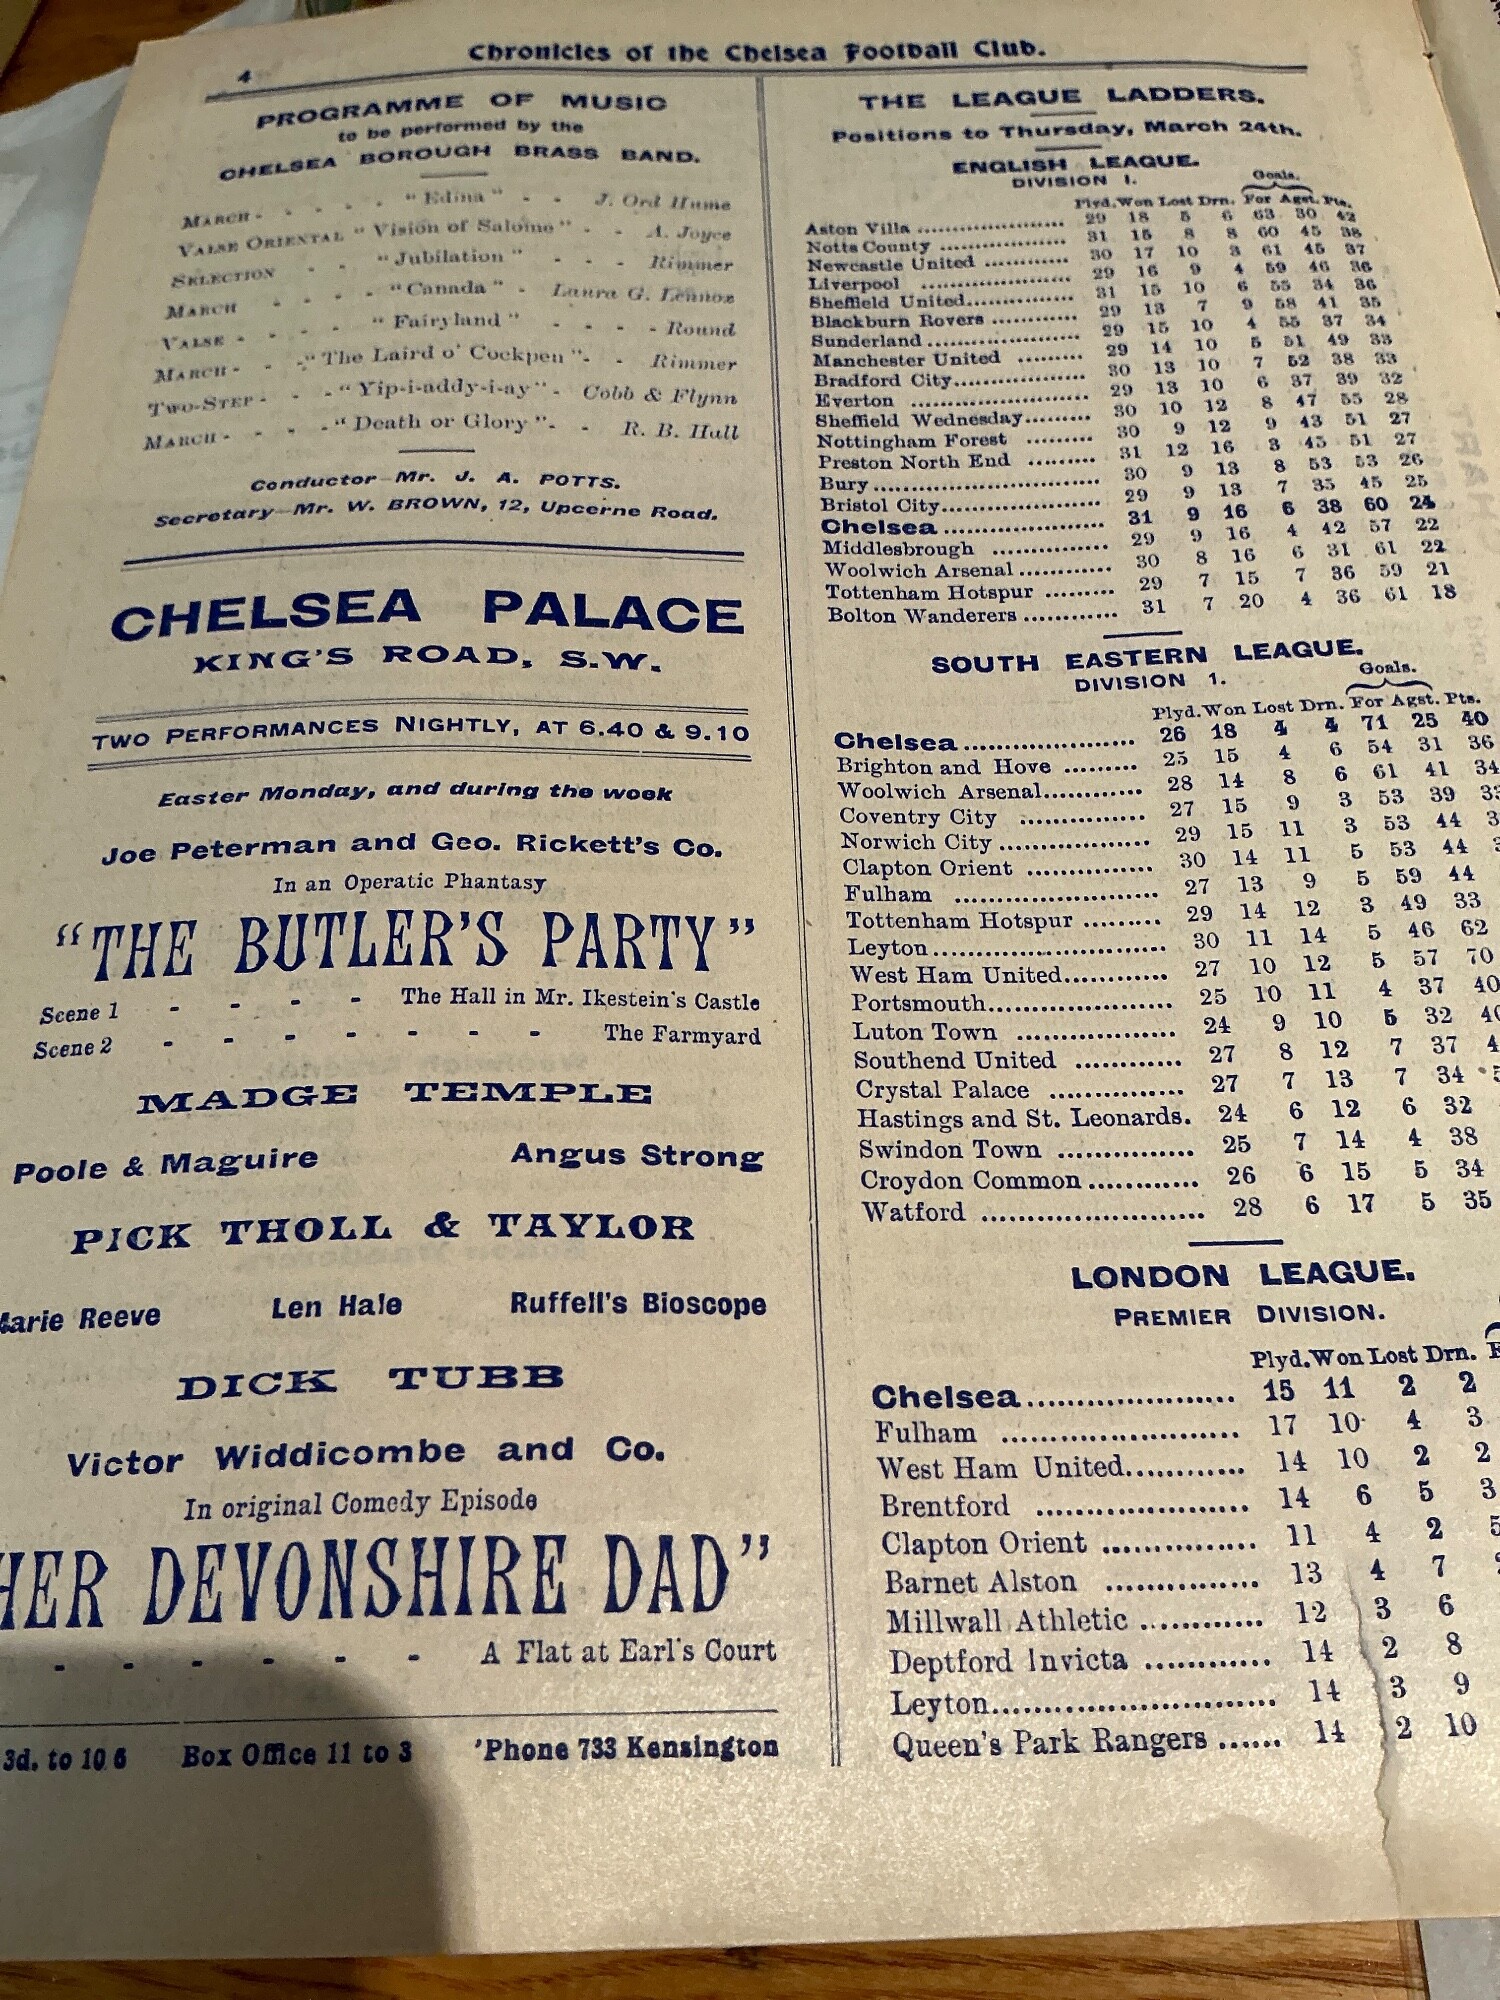 Chronicles of the Chelsea Football Club.
4
PROGRAMME OF MUSIC
to be performed by the
CHELSEA BOROUGH BRASS BAND.
MARCH - - - - - "Edina" - - J. Ord Hume
VALSE ORIENTAL "Vision of Salome" - - A. Joyce
SELECTION - - "Jubilation" - - - Rimmer
MARCH - - - - "Canada" - Laura G. Lennox
VALSE - - - - "Fairyland" - - - - Round
MARCH - - "The Laird o' Cockpen" - - Rimmer
TWO-STEP - - - "Yip-i-addy-i-ay" - Cobb & Flynn
MARCH - - - - "Death or Glory" - - R. B. Hall
Conductor—Mr. J. A. POTTS.
Secretary—Mr. W. BROWN, 12, Upcerne Road.
CHELSEA PALACE
KING'S ROAD, S.W.
TWO PERFORMANCES NIGHTLY, AT 6.40 & 9.10
Easter Monday, and during the week
Joe Peterman and Geo. Rickett's Co.
In an Operatic Phantasy
"THE BUTLER'S PARTY"
Scene 1 - - - - The Hall in Mr. Ikestein's Castle
Scene 2 - - - - - - - The Farmyard
MADGE TEMPLE
Poole & Maguire Angus Strong
PICK THOLL & TAYLOR
Marie Reeve Len Hale Ruffell's Bioscope
DICK TUBB
Victor Widdicombe and Co.
In original Comedy Episode
HER DEVONSHIRE DAD"
- - - - - - A Flat at Earl's Court
3d. to 10 6 Box Office 11 to 3 'Phone 733 Kensington
THE LEAGUE LADDERS.
Positions to Thursday, March 24th.
ENGLISH LEAGUE.
DIVISION 1.
Goals.
Plyd. Won Lost Drn. For Agst. Pts.
Aston Villa 29 18 5 6 63 30 42
Notts County 31 15 8 8 60 45 38
Newcastle United 30 17 10 3 61 45 37
Liverpool 29 16 9 4 59 46 36
Sheffield United 31 15 10 6 55 34 36
Blackburn Rovers 29 13 7 9 58 41 35
Sunderland 29 15 10 4 55 37 34
Manchester United 29 14 10 5 51 49 33
Bradford City 30 13 10 7 52 38 33
Everton 29 13 10 6 37 39 32
Sheffield Wednesday 30 10 12 8 47 55 28
Nottingham Forest 30 9 12 9 43 51 27
Preston North End 31 12 16 3 45 51 27
Bury 30 9 13 8 53 53 26
Bristol City 29 9 13 7 35 45 25
Chelsea 31 9 16 6 38 60 24
Middlesbrough 29 9 16 4 42 57 22
Woolwich Arsenal 30 8 16 6 31 61 22
Tottenham Hotspur 29 7 15 7 36 59 21
Bolton Wanderers 31 7 20 4 36 61 18
SOUTH EASTERN LEAGUE.
DIVISION 1.
Goals.
Plyd. Won Lost Drn. For Agst. Pts.
Chelsea 26 18 4 4 71 25 40
Brighton and Hove 25 15 4 6 54 31 36
Woolwich Arsenal 28 14 8 6 61 41 34
Coventry City 27 15 9 3 53 39 33
Norwich City 29 15 11 3 53 44
Clapton Orient 30 14 11 5 53 44
Fulham 27 13 9 5 59 44
Tottenham Hotspur 29 14 12 3 49 33
Leyton 30 11 14 5 46 62
West Ham United 27 10 12 5 57 70
Portsmouth 25 10 11 4 37 40
Luton Town 24 9 10 5 32
Southend United 27 8 12 7 37
Crystal Palace 27 7 13 7 34
Hastings and St. Leonards. 24 6 12 6 32
Swindon Town 25 7 14 4 38
Croydon Common 26 6 15 5 34
Watford 28 6 17 5 35
LONDON LEAGUE.
PREMIER DIVISION.
Plyd. Won Lost Drn.
Chelsea 15 11 2 2
Fulham 17 10 4 3
West Ham United 14 10 2 2
Brentford 14 6 5 3
Clapton Orient 11 4 2 5
Barnet Alston 13 4 7
Millwall Athletic 12 3 6
Deptford Invicta 14 2 8
Leyton 14 3 9
Queen's Park Rangers 14 2 10